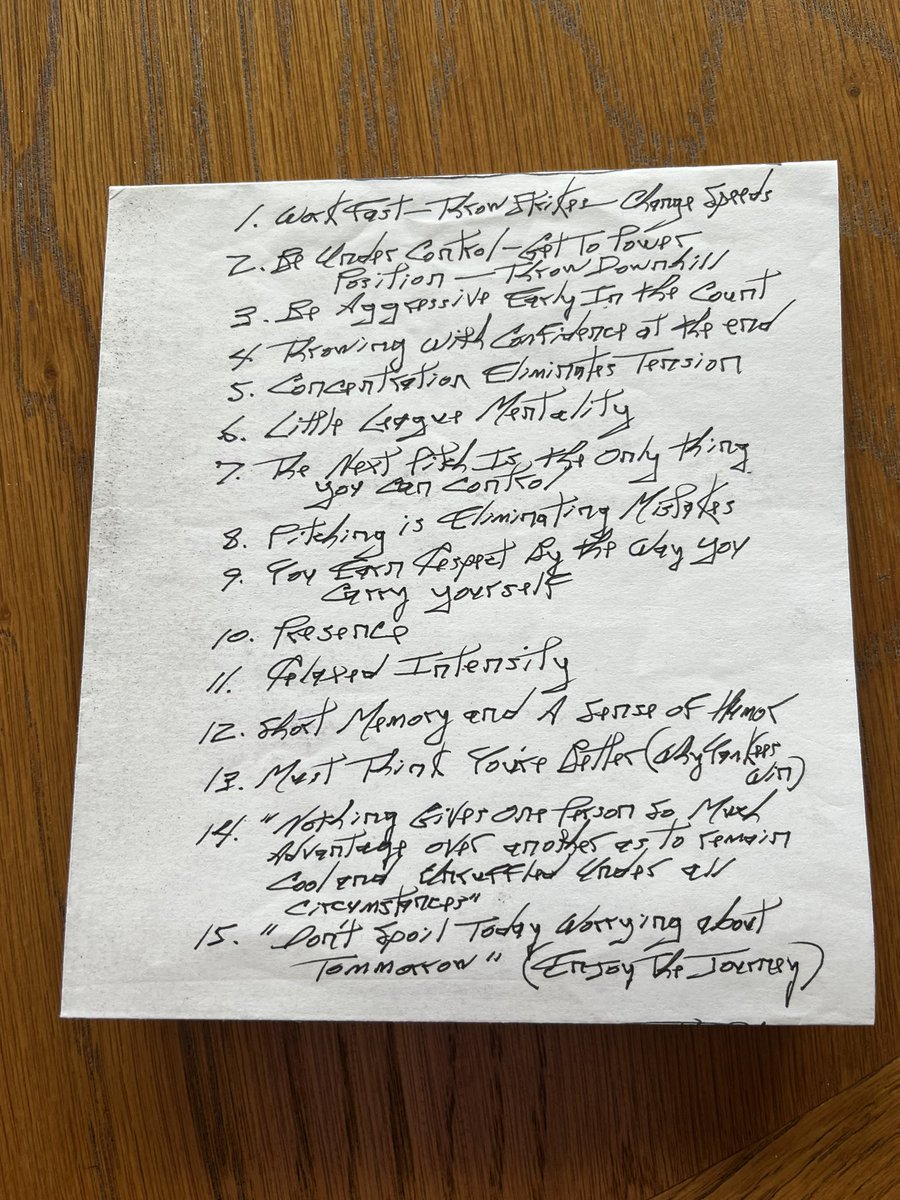 1. Work Fast—Throw Strikes—Change Speeds
2. Be Under Control—Get To Power
Position—Throw Downhill
3. Be Aggressive Early In the Count
4. Throwing with Confidence at the end
5. Concentration Eliminates Tension
6. Little League Mentality
7. The Next Pitch Is the Only thing
you can control
8. Pitching is Eliminating Mistakes
9. You Earn Respect By the Way you
Carry yourself
10. Presence
11. Relaxed Intensity
12. Short Memory and A Sense of Humor
13. Must Think You're Better (Why Yankees
Win)
14. "Nothing Gives One Person So Much
Advantage over another as to remain
Cool and Unruffled Under all
Circumstances"
15. "Don't Spoil Today Worrying about
Tommorrow" (Enjoy The Journey)